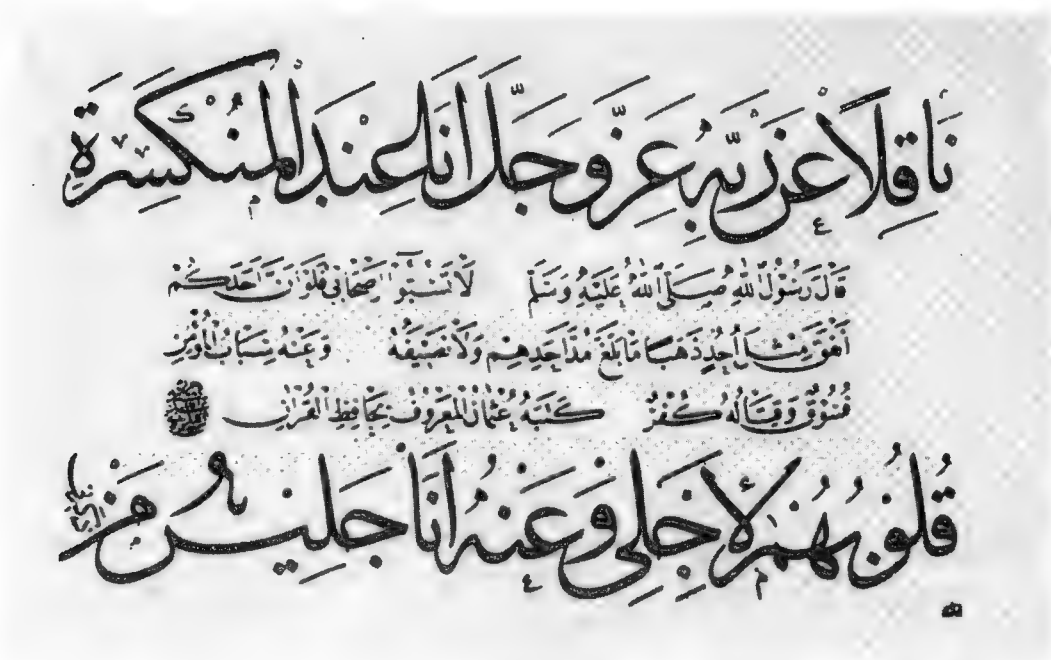 نَاقِلًا عَنْ رَبِّهِ عَزَّ وَجَلَّ أَنَا عِنْدَ الْمُنْكَسِرَةِ
قَالَ رَسُولُ اللهِ صَلَّى اللهُ عَلَيْهِ وَسَلَّمَ لَا تَسُبُّوا أَصْحَابِي فَلَوْ أَنَّ أَحَدَكُمْ
أَنْفَقَ مِثْلَ أُحُدٍ ذَهَبًا مَا بَلَغَ مُدَّ أَحَدِهِمْ وَلَا نَصِيفَهُ وَعَنْهُ سِبَابُ الْمُؤْمِنِ
فُسُوقٌ وَقِتَالُهُ كُفْرٌ كَتَبَهُ عُثْمَانُ الْمَعْرُوفُ بِحَافِظِ الْقُرْآنِ
قُلُوبُهُمْ لِأَجْلِي وَعَنْهُ أَنَا جَلِيسُ مَنْ